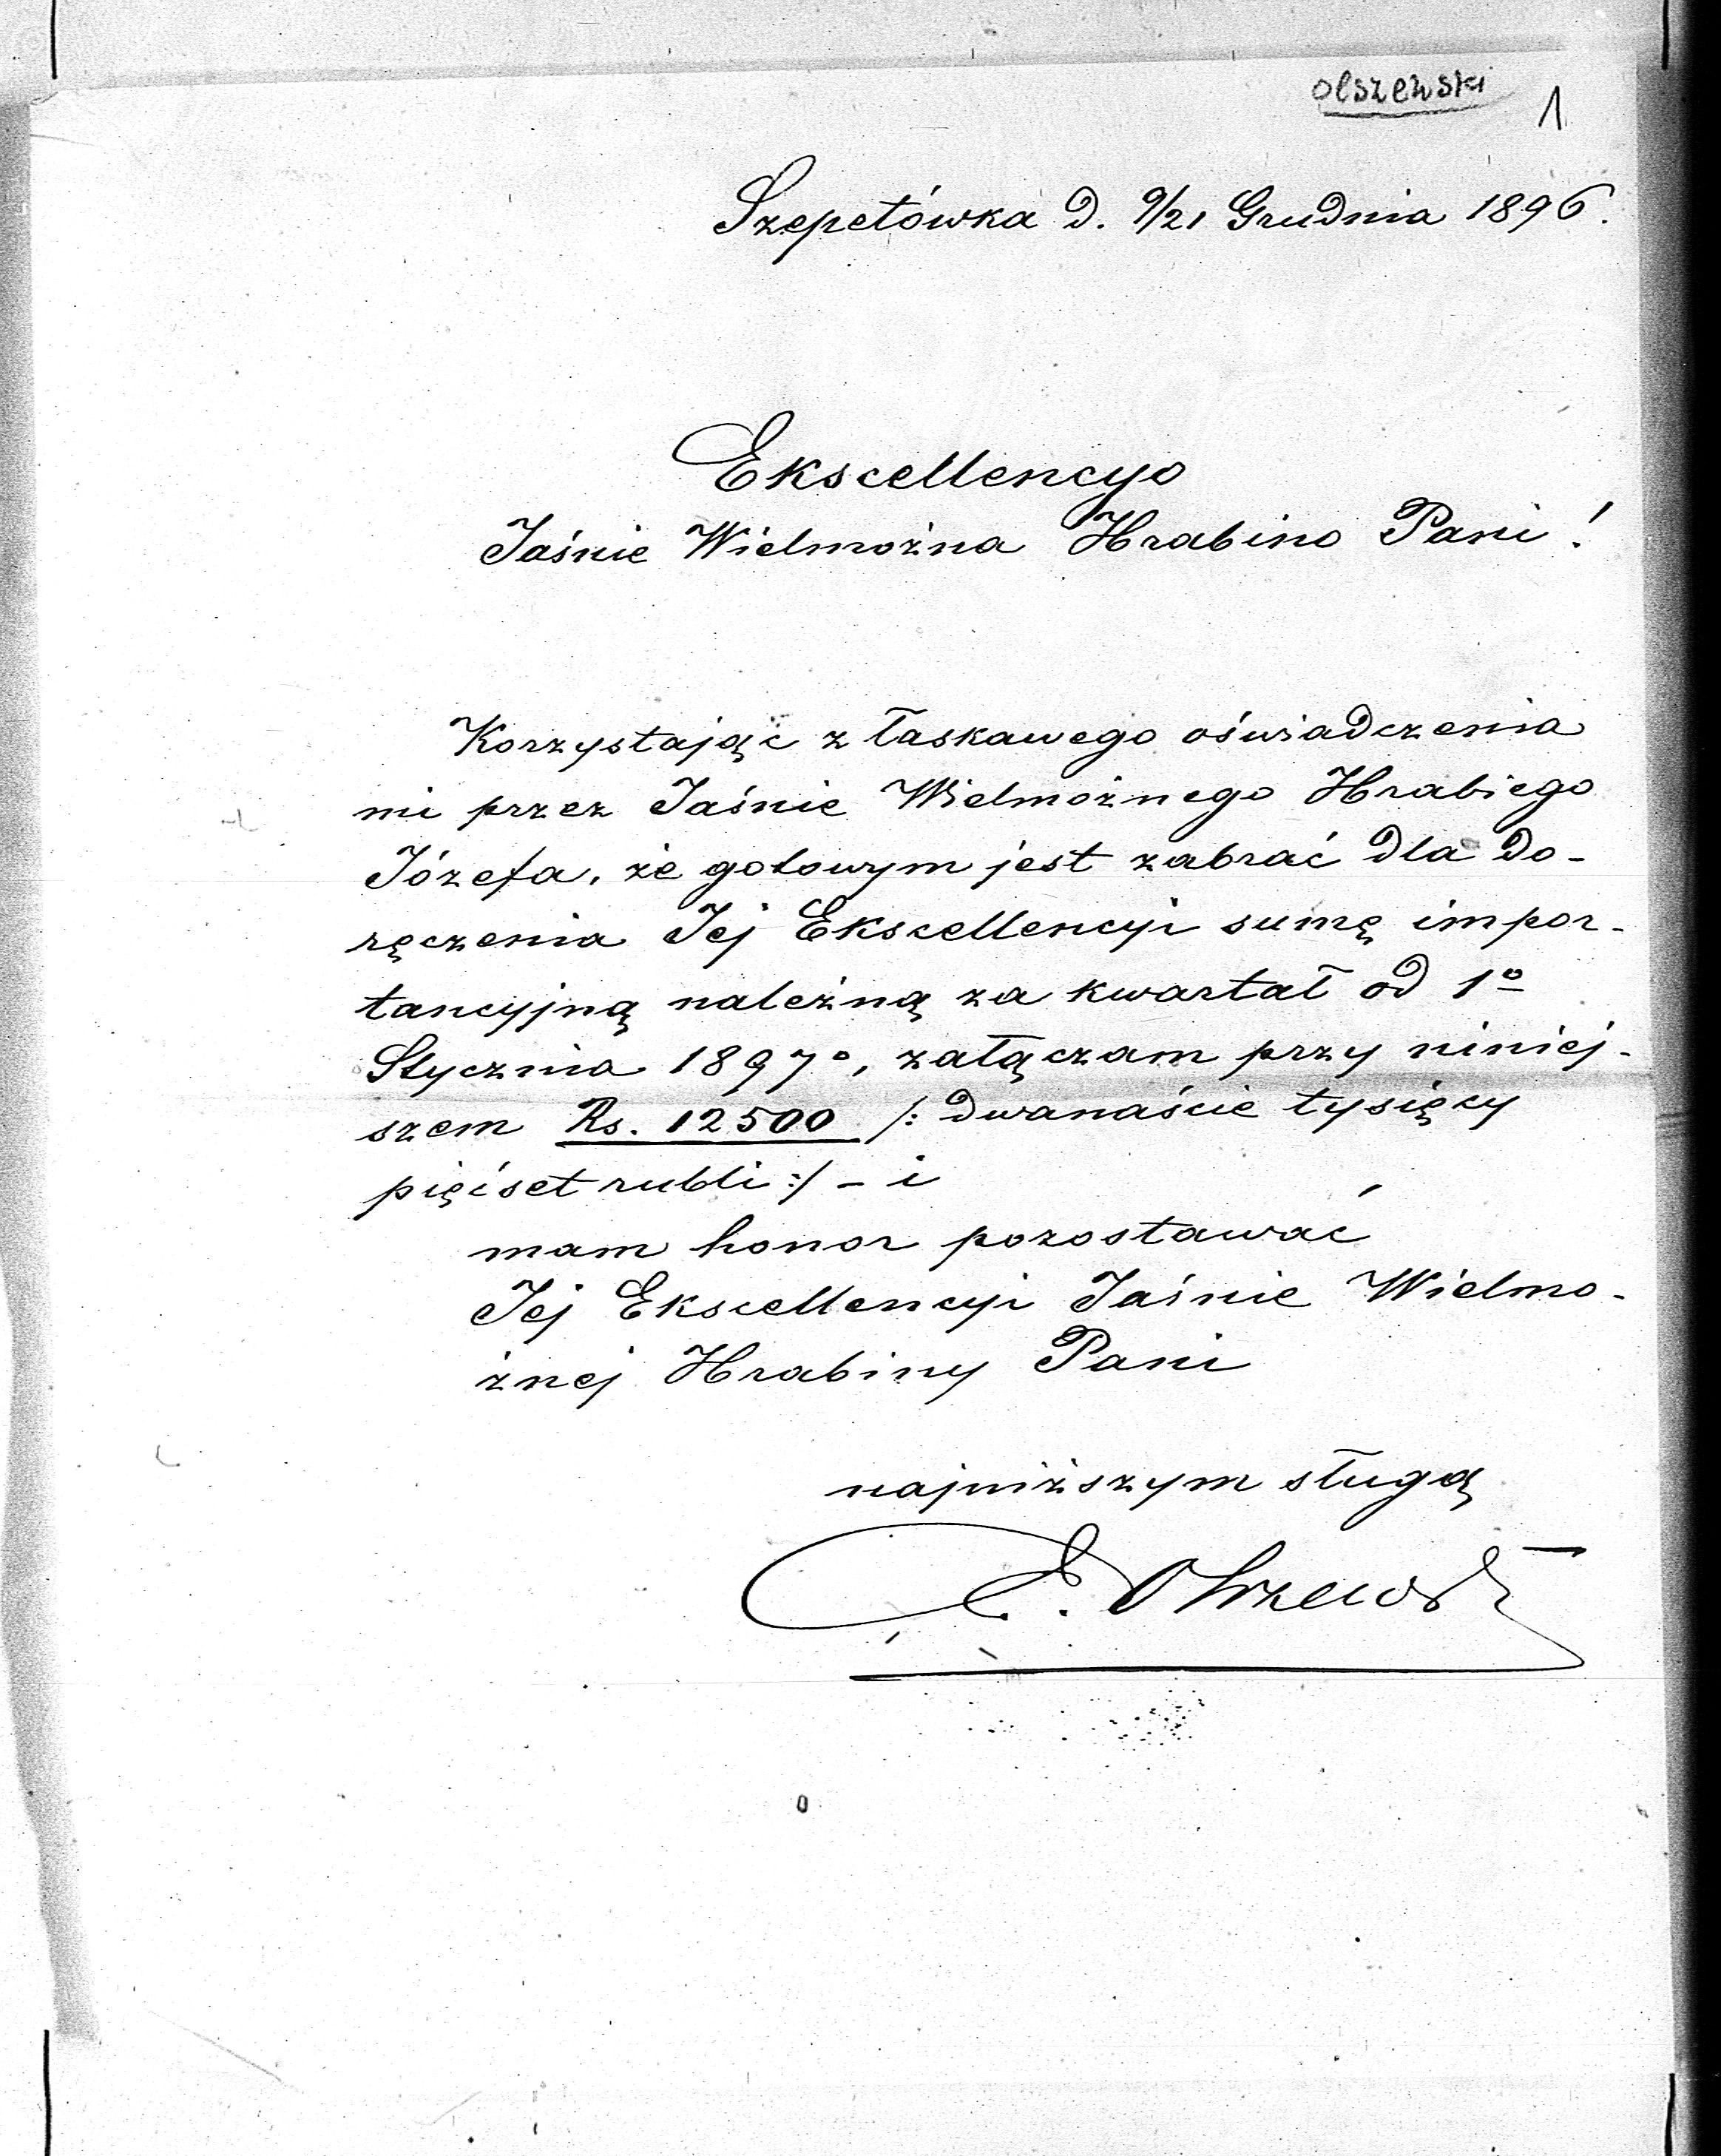 Olszewski
1
Szepetówka d. 9/21 Grudnia 1896.
Ekscellencyo
Jaśnie Wielmożna Hrabino Pani!
Korzystając z łaskawego oświadczenia
mi przez Jaśnie Wielmożnego Hrabiego
Józefa, że gotowym jest zabrać dla do-
ręczenia Jej Ekscellencyi sumę impor-
tancyjną należną za kwartał od 1º
Stycznia 1897º, załączam przy niniej-
szem Rs. 12500 /: dwanaście tysięcy
pięćset rubli :/ - i
mam honor pozostawać
Jej Ekscellencyi Jaśnie Wielmo-
żnej Hrabiny Pani
najniższym sługą
E. Olszewski